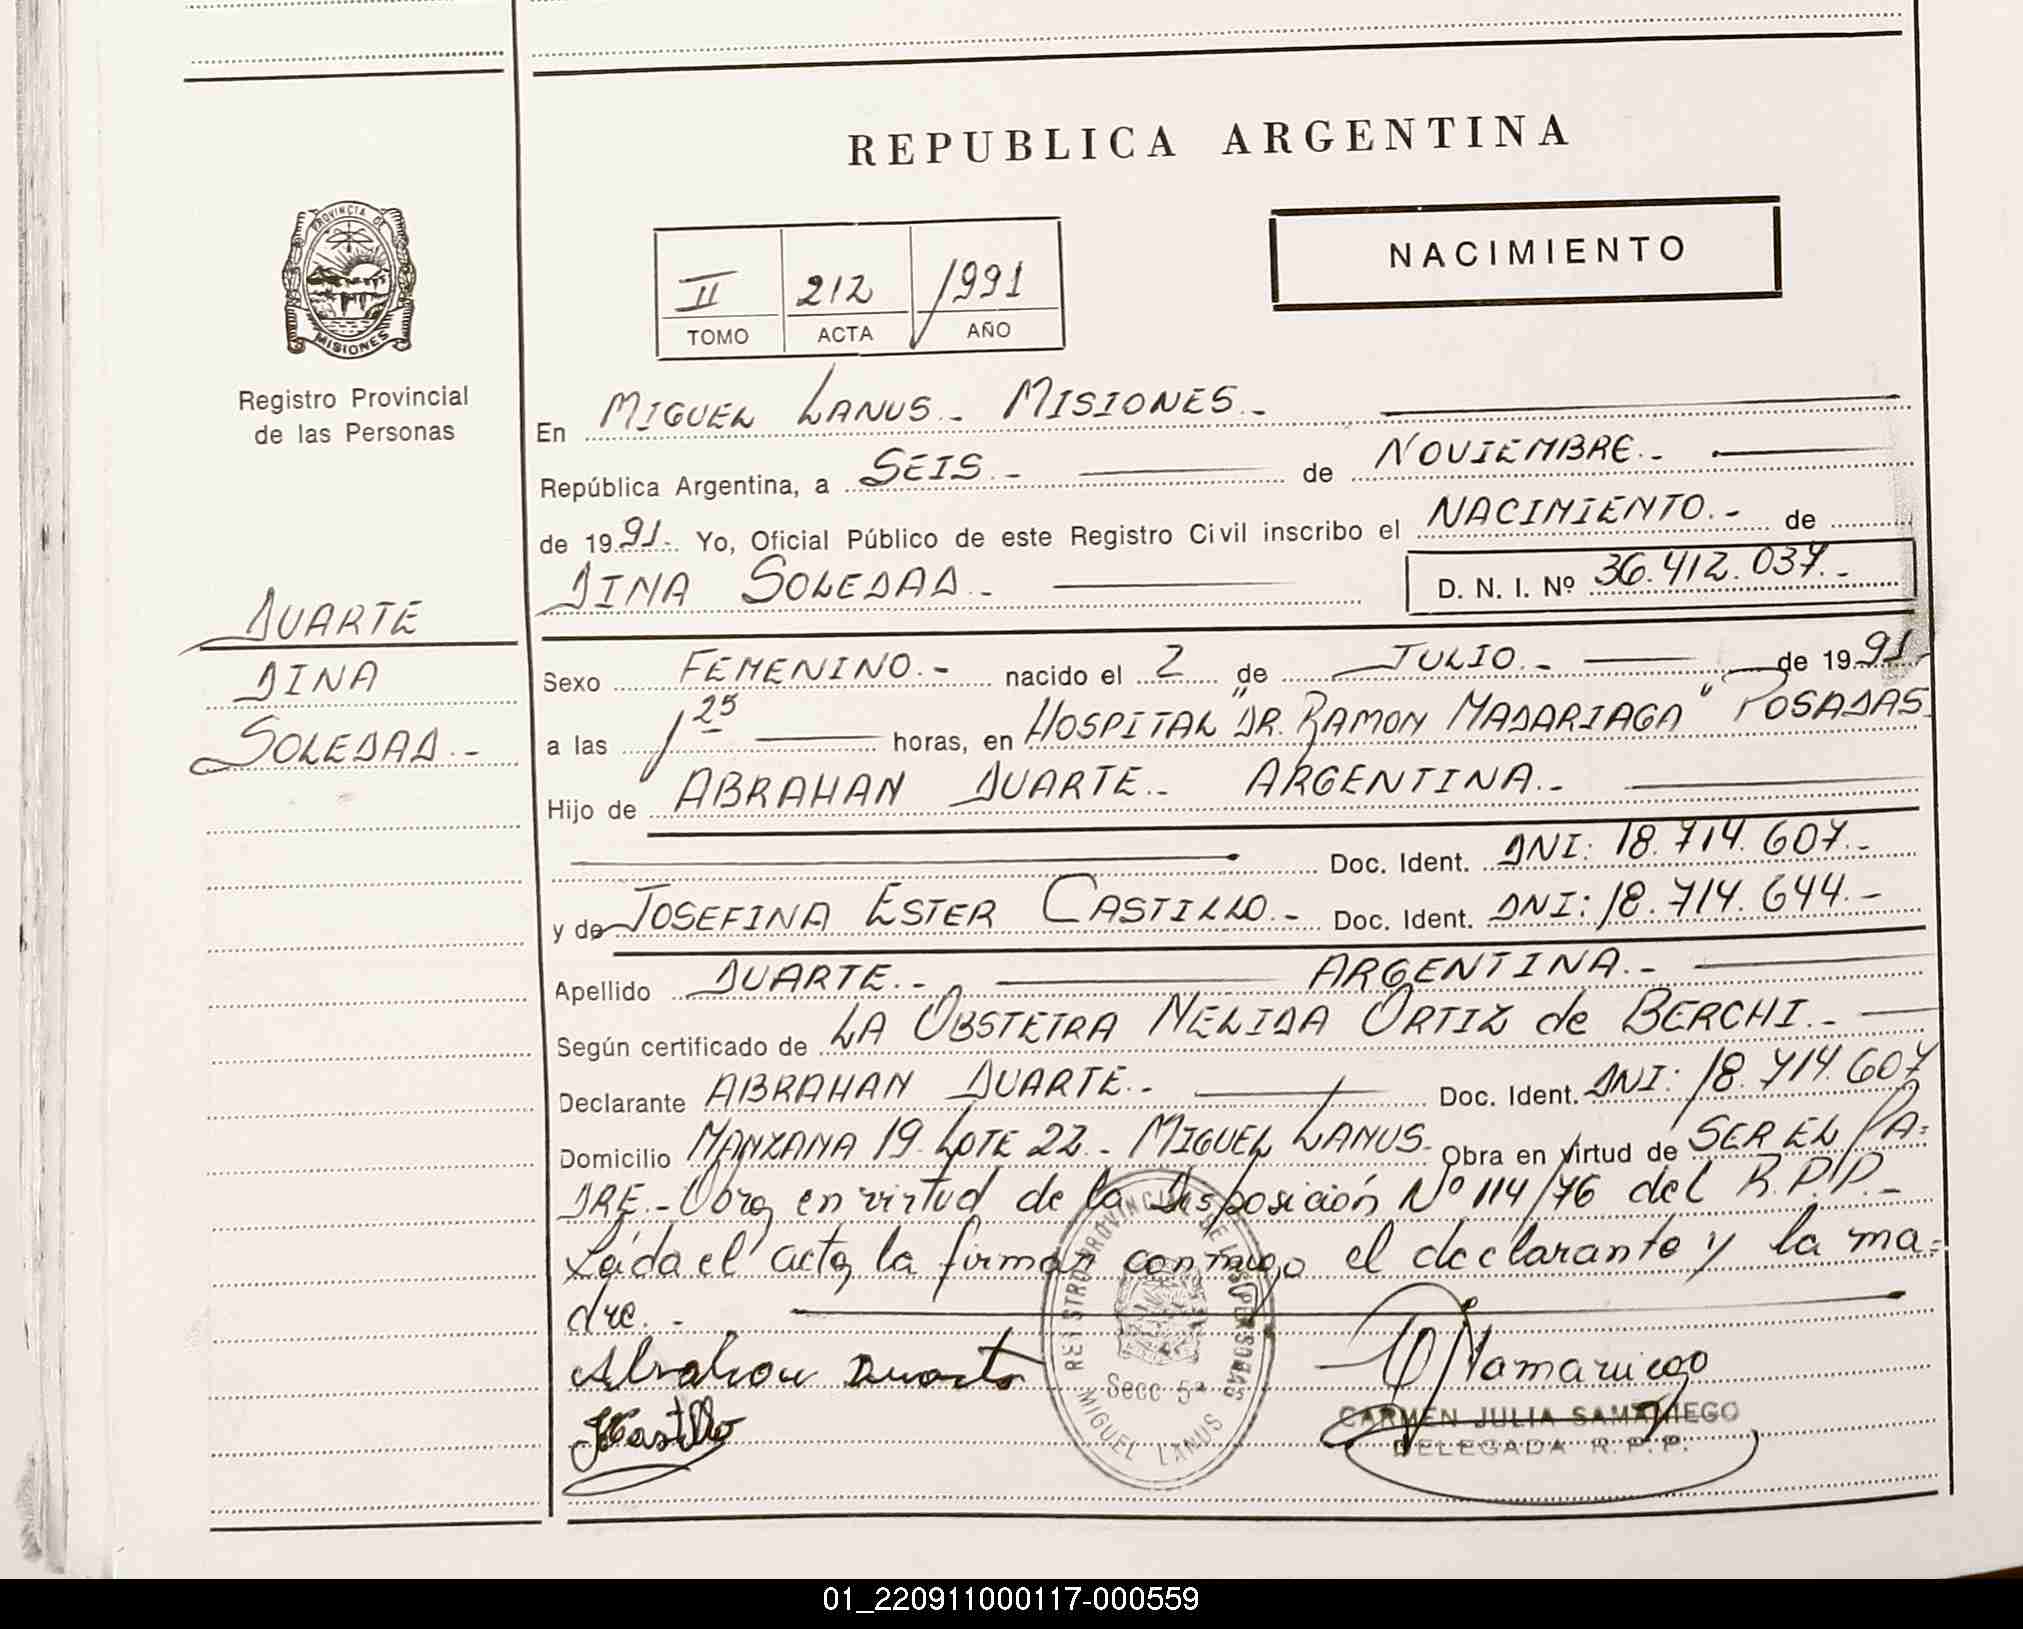 REPUBLICA ARGENTINA
PROVINCIA DE
MISIONES
Registro Provincial
de las Personas
NACIMIENTO
II 212 1991
TOMO ACTA AÑO
En MIGUEL LANUS.- MISIONES.-
República Argentina, a SEIS.- de NOVIEMBRE.-
de 1991.- Yo, Oficial Público de este Registro Civil inscribo el NACIMIENTO.- de
DINA SOLEDAD.- D. N. I. Nº 36.412.037.-
DUARTE
DINA
SOLEDAD.-
Sexo FEMENINO.- nacido el 2 de JULIO.- de 1991
a las 1 25 horas, en HOSPITAL "DR. RAMON MADARIAGA" POSADAS
Hijo de ABRAHAN DUARTE.- ARGENTINA.-
Doc. Ident. DNI: 18.714.607.-
y de JOSEFINA ESTER CASTILLO.- Doc. Ident. DNI: 18.714.644.-
Apellido DUARTE.- ARGENTINA.-
Según certificado de LA OBSTETRA NELIDA ORTIZ de BERCHI.-
Declarante ABRAHAN DUARTE.- Doc. Ident. DNI: 18.714.607
Domicilio MANZANA 19 LOTE 22.- MIGUEL LANUS.- Obra en virtud de SER EL PA=
DRE.- Obra en virtud de la Disposición Nº 114/76 del R.P.P.-
Leida el acta, la firman conmigo el declarante y la ma=
dre.-
Abrahan Duarte
JCastillo
REGISTRO PROVINCIAL DE LAS PERSONAS
Secc 5ª
MIGUEL LANUS
CARMEN JULIA SAMANIEGO
DELEGADA R.P.P.
01_220911000117-000559